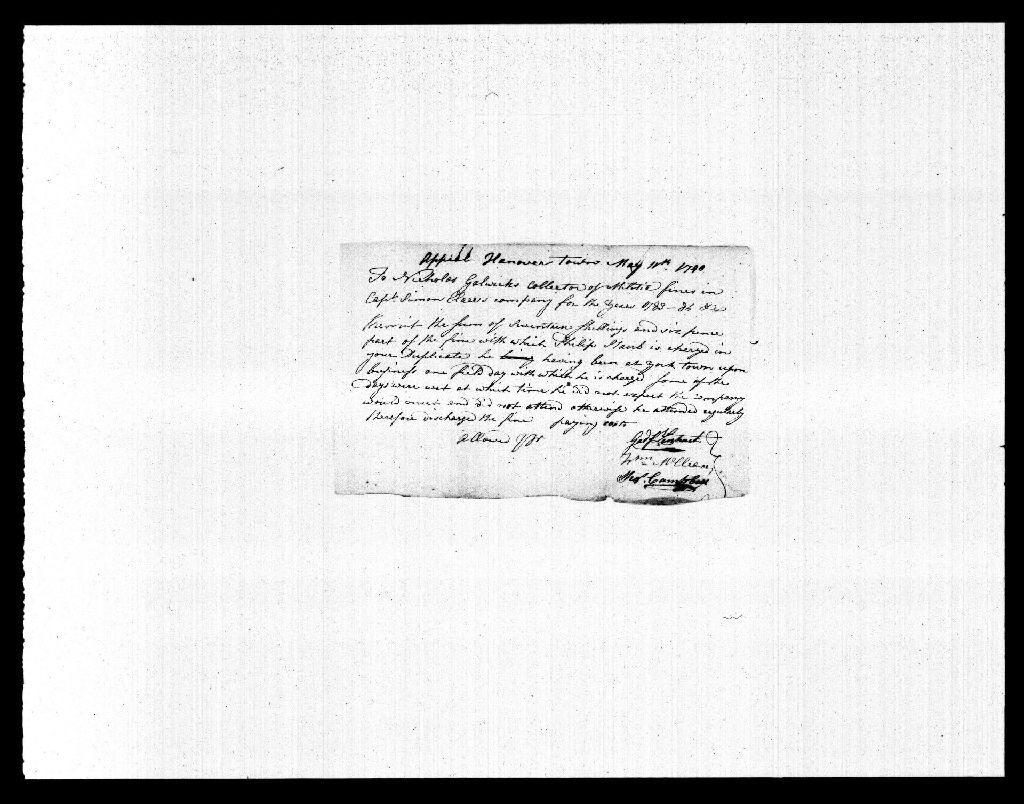 Appeal Hanover town May 11th. 1790
To Nicholas Gelwicks Collector of Militia fines in
Capt. Simon Clares company for the Years 1785 - 86 &c
Remit the sum of Seventeen Shillings and six pence
part of the fine with which Philip Staub is charged in
your Duplicate he being having been at York town upon
business one field day with which he is charged some of the
days were wet at which time he did not expect the company
would meet and did not attend otherwise he attended regularly
therefore discharged the fine paying costs
Allowed
Wm. McClean
Thos. Campbell